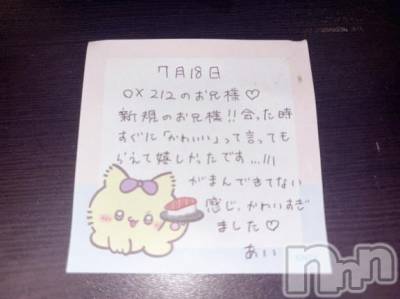 7月18日
OX212のお兄様♡
新規のお兄様!!会った時
すぐに「かわいい」って言っても
らえて嬉しかったです...///
がまんできてない
感じ、かわいすぎ
ました♡
あい
Nnn